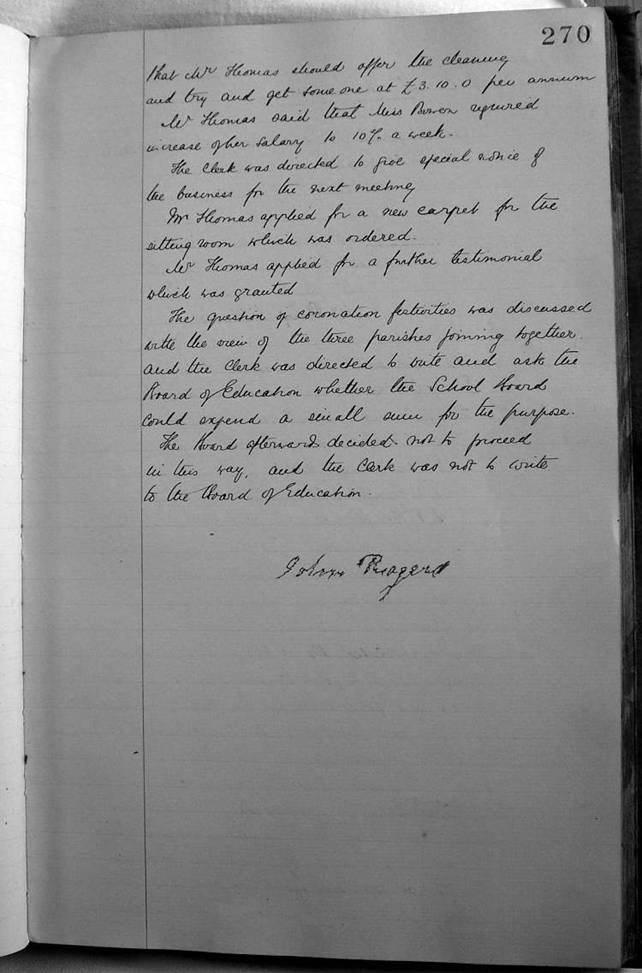 270
that Mr Thomas should offer the cleaning
and try and get some one at £3.10.0 per annum
Mr Thomas said that Miss Bowen required
increase of her salary to 10/- a week.
The Clerk was directed to give special notice of
the business for the next meeting
Mr Thomas applied for a new carpet for the
sitting room which was ordered.
Mr Thomas applied for a further testimonial
which was granted
The question of coronation festivities was discussed
with the view of the three parishes joining together.
and the Clerk was directed to write and ask the
Board of Education whether the School Board
could expend a small sum for the purpose.
The Board afterwards decided not to proceed
in this way, and the Clerk was not to write
to the Board of Education.